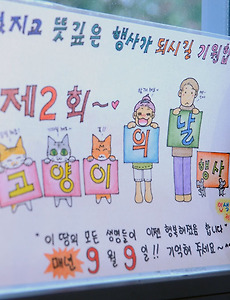 지고 뜻깊은 행사가 되시길 기원합
제2회~♥
고양이의날
행사
"이 땅의 모든 생명들이 이젠 행복해졌음 합니다"
매년 9월 9일!! 기억해 주세요~